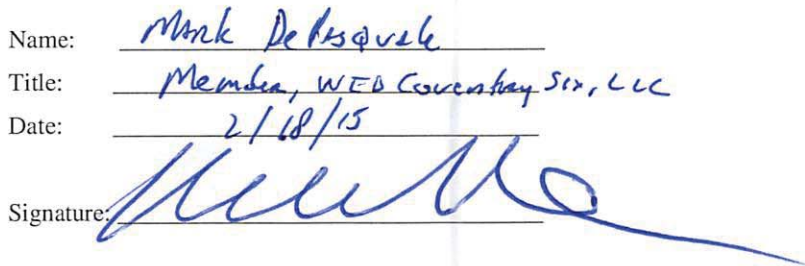 Name: Mark DePasquale
Title: Member, WED Coventry Six, LLC
Date: 2/18/15
Signature: